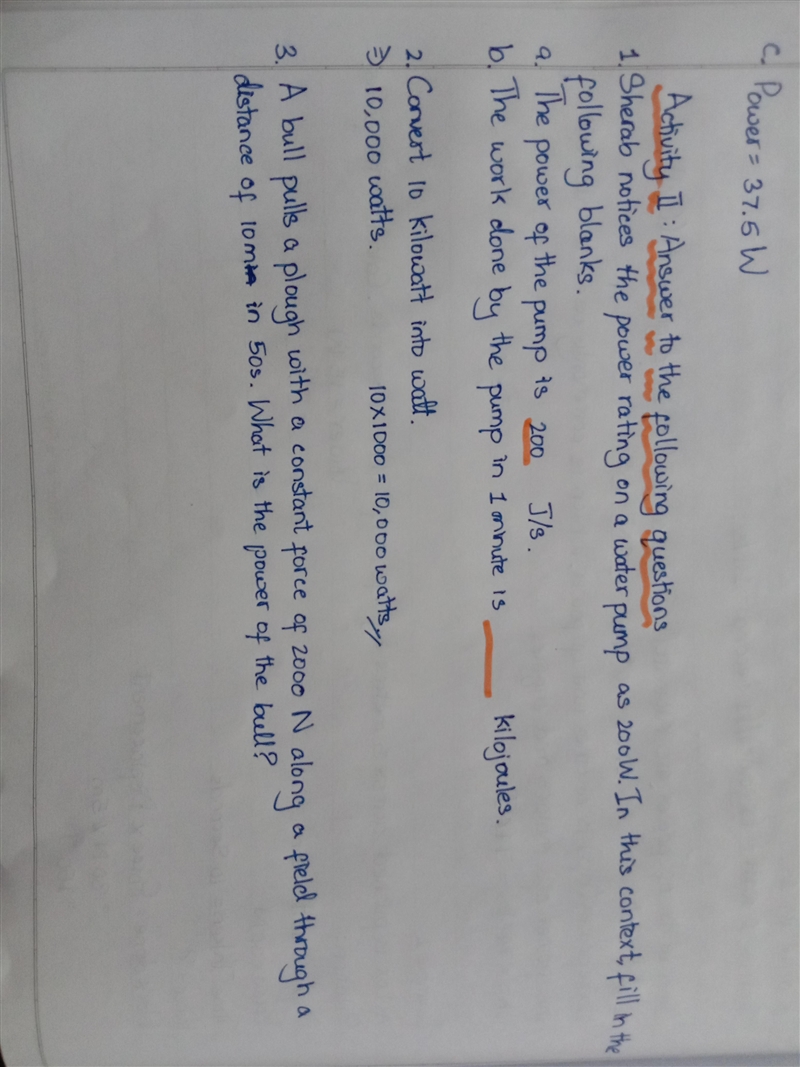 c. Power = 37.5 W
Activity II : Answer to the following questions
1. Sherab notices the power rating on a water pump as 200W. In this context, fill in the
following blanks.
a. The power of the pump is 200 J/s.
b. The work done by the pump in 1 minute is ____ kilojoules.
2. Convert 10 kilowatt into watt.
⇒ 10,000 watts. 10×1000 = 10,000 watts
3. A bull pulls a plough with a constant force of 2000 N along a field through a
distance of 10m in 50s. What is the power of the bull?